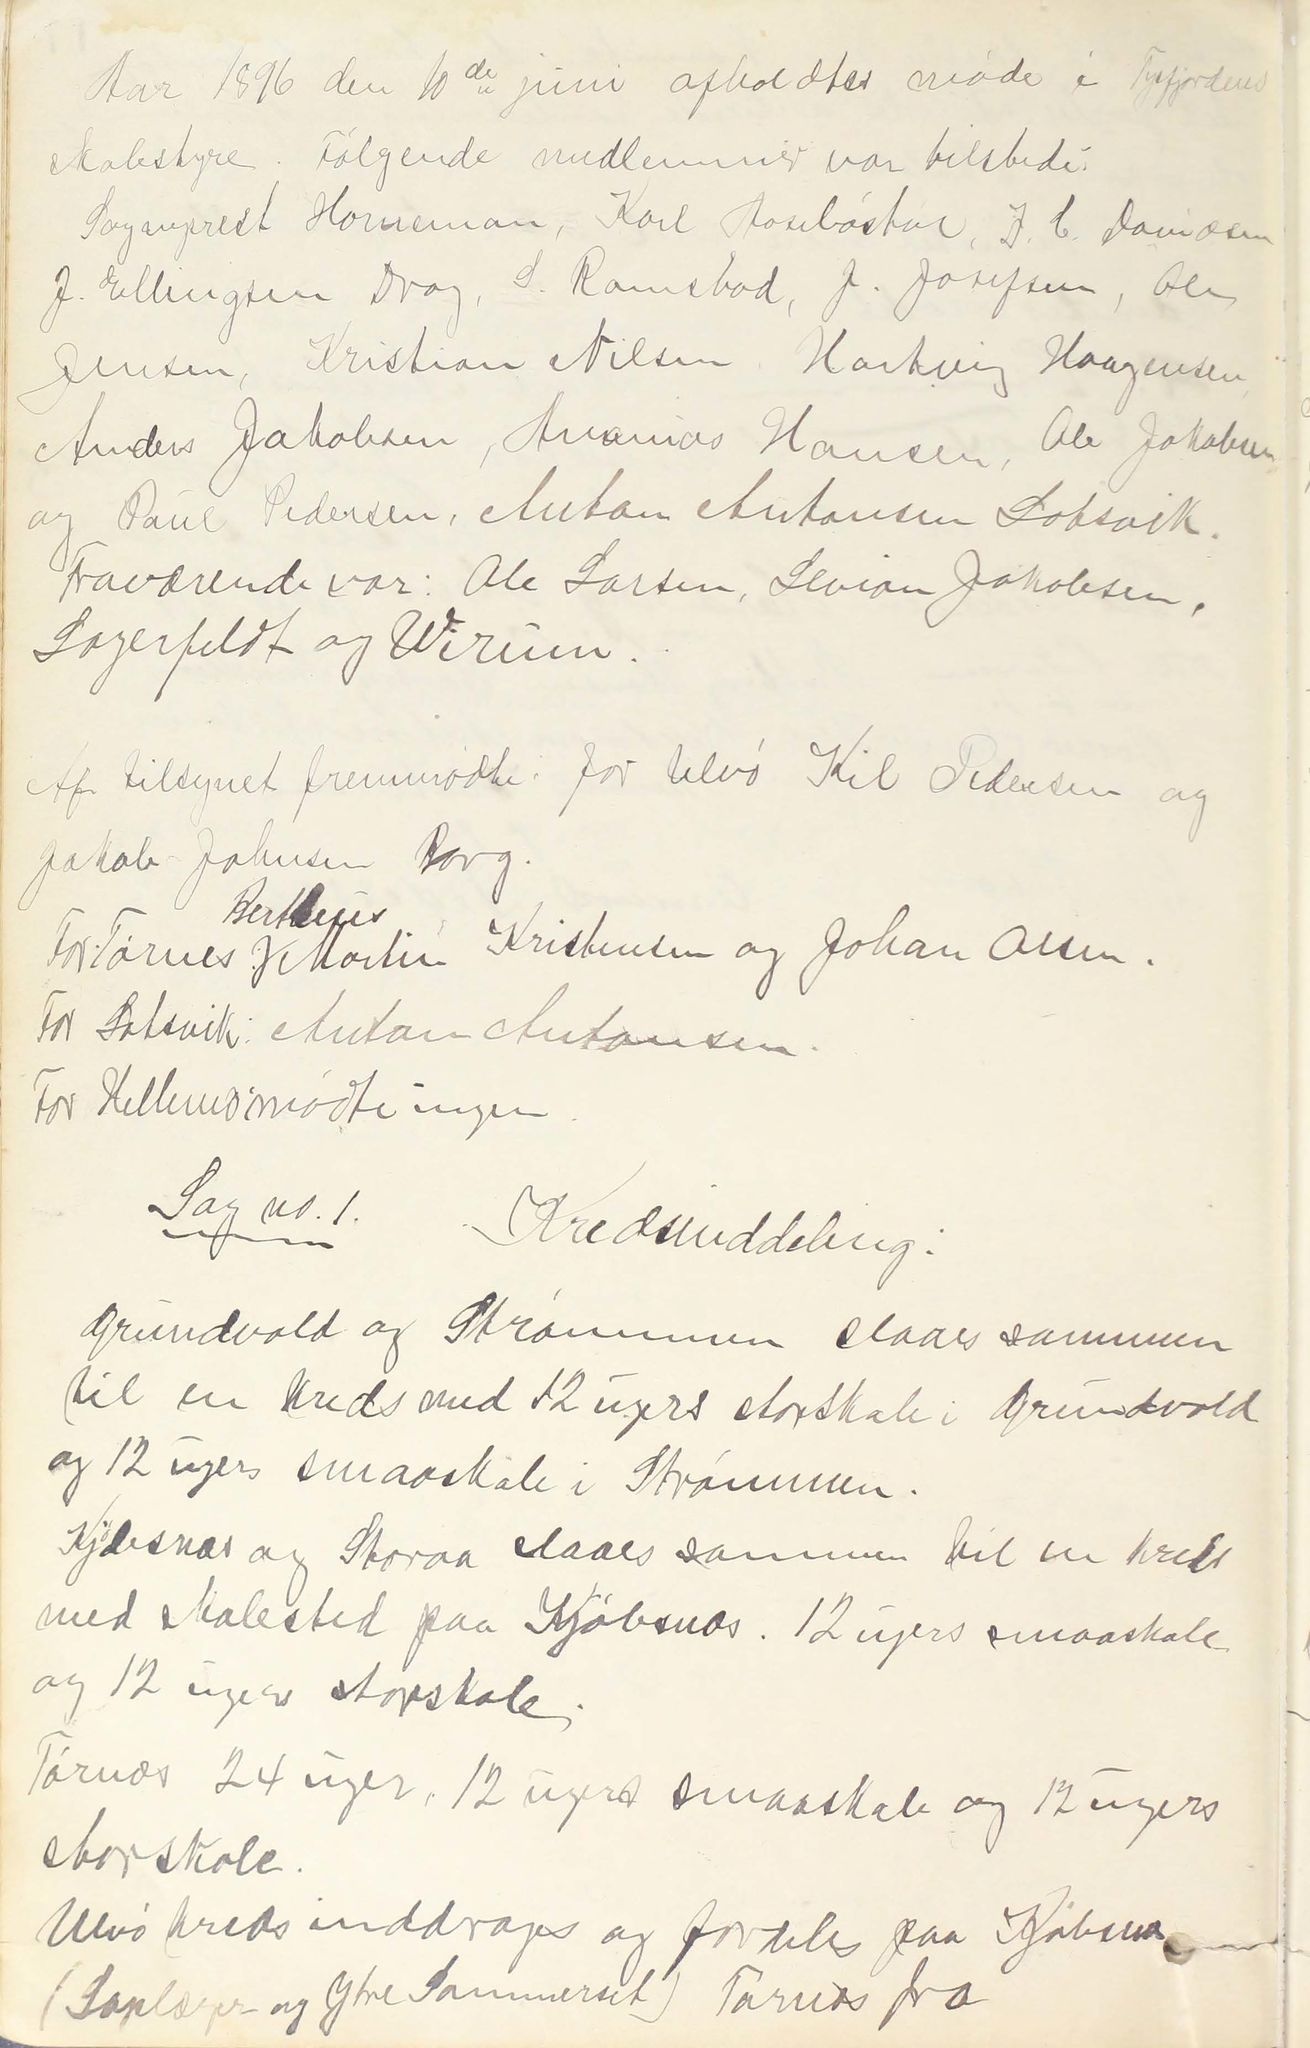 Aar 1896 den 10de juni afholdtes møde i Tysfjordens
skolestyre. Følgende medlemmer var tilstede:
Sogneprest Horneman, Karl Rosebøstad, J. C. Davidsen
J. Ellingsen Drag, S. Ramsbod, J. Josefsen, Ole
Jensen, Kristian Nilsen Hartvig Haagensen,
Anders Jakobsen, Ananias Hansen, Ole Jakobsen
og Paul Pedersen, Anton Antonsen Sotsvik.
Fraværende var: Ole Larsen, Levion Jakobsen,
Lagerfeldt og Wirum.
Af tilsynet fremmødte: for Ulvø Kil Pedersen og
Jakob Johnsen Borg.
Bertheus
For Tørnes Martin Kristensen og Johan Olsen.
For Sotsvik: Anton Antonsen.
For Hellemo mødte ingen.
Sag no. 1. Kredsinddeling:
Grundvold og Strømmen slaaes sammen
til en kreds med 12 ugers storskole i Grundvold
og 12 ugers smaaskole i Strømmen.
Kjøbsnæs og Storaa slaaes sammen til en kreds
med skolested paa Kjøbsnæs. 12 ugers smaaskole
og 12 ugers storskole.
Tørnæs 24 uger, 12 ugers smaaskole og 12 ugers
storskole.
Ulvø kreds inddrages og fordeles paa Kjøbsnæs
( og Ytre Sommerset) Tørnæs fra